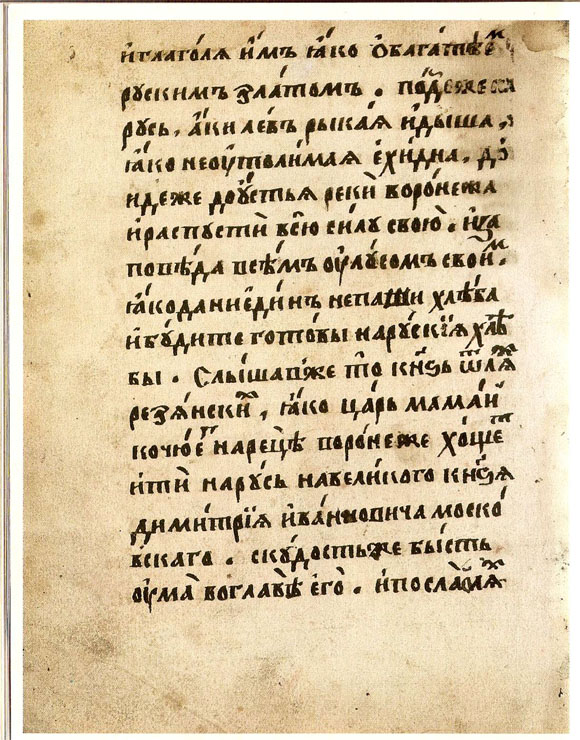 и҆глаго́лѧ и҆́мъ ꙗ҆́ко ѻ҆багатѣ́еⷨ
рускимъ зла́томъ . по́идеже на
русь , а҆́ки ле́въ рыка́ѧ и҆ дыша ,
ꙗ҆́ко неоутоли́маѧ є҆хи́дна . до
идеже доу́стьѧ реки̑ воро́нежа
и҆распусти̑ всю̀ си́лу свою̀ . и҆за
повѣ́да всѣ́мъ оулу́сомъ свои́ⷨ .
ꙗ҆́ко да ни є҆ди́нъ непаши хлѣ́ба
и҆бу́дите гото́вы на рускі́ѧ хлѣ́
бы . Слы́шавже то̀ кнѕь ѿлⷢ҇ѧ
резѧ́нскиⷤ , ꙗ҆́ко ца́рь мама́й
кочю́еⷮ нареце̑ воро́неже хо́щеⷮ
и҆ти̑ нару́сь навели́кого кнѕѧ
дими́трїѧ и҆ва́нновича моско́
вскаго . ску́достьже бы́сть
оума̀ воглавѣ̀ є҆го̀ . и҆посла